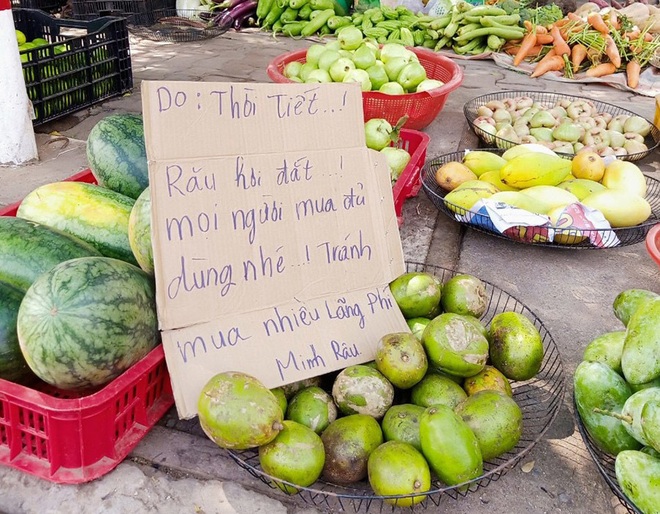 Do : Thời Tiết...!
Rău hơi đắt...!
mọi người mua đủ
dùng nhé...! Tránh
mua nhiều Lãng Phí
Minh Râu